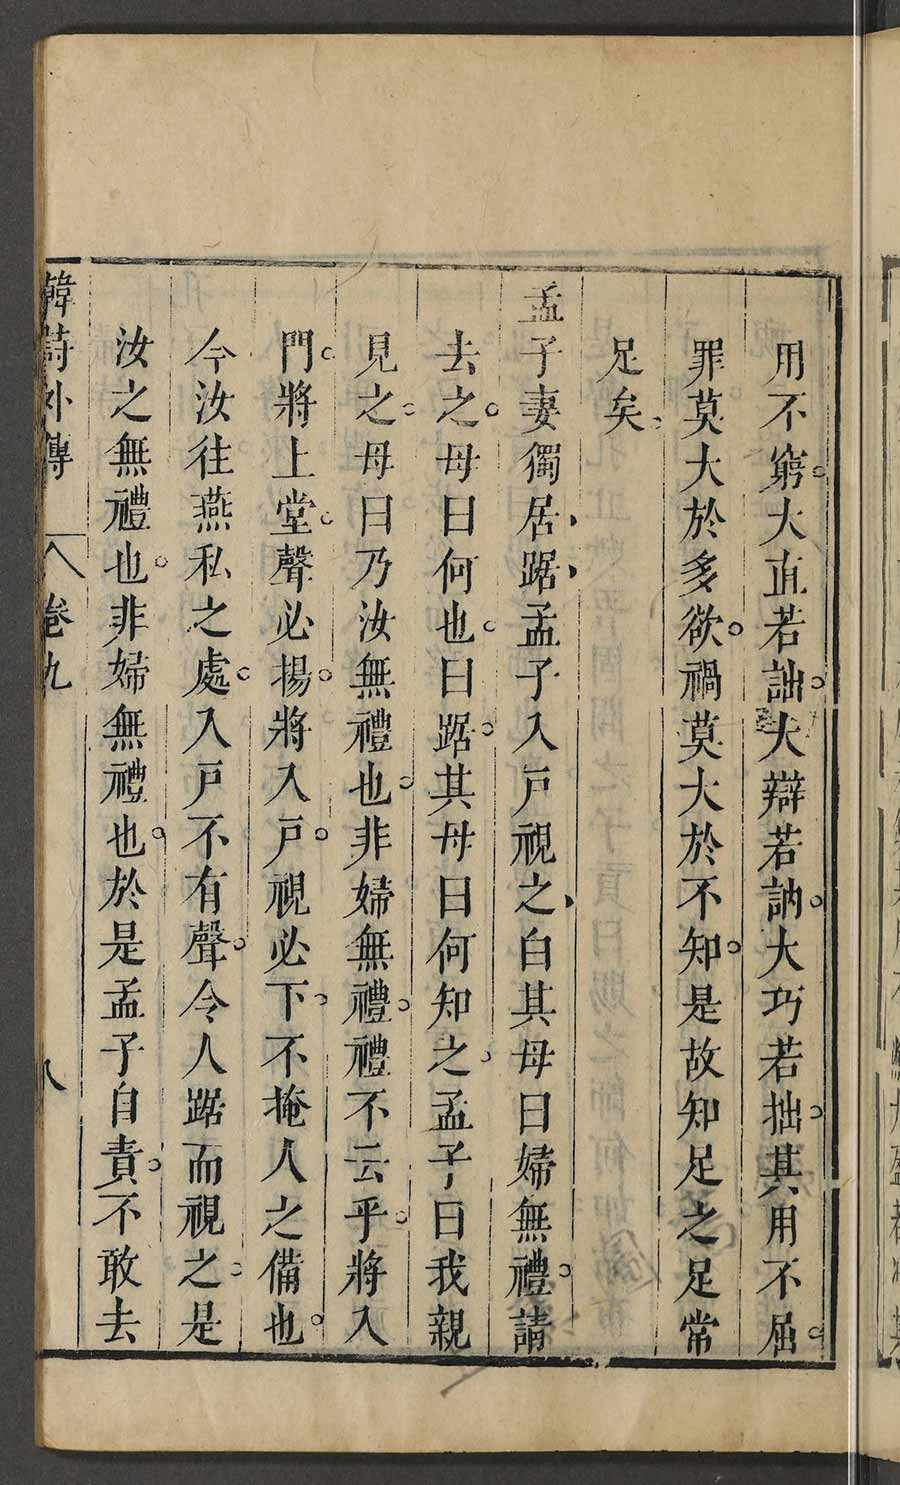 用不窮。大直若詘。大辯若訥。大巧若拙。其用不屈。
罪莫大於多欲。禍莫大於不知。是故知足之足常
足矣、
孟子妻獨居、踞、孟子入戸視之、白其母曰婦無禮。請
去之。母曰何也。曰踞。其母曰何知之、孟子曰我親
見之。母曰乃汝無禮也。非婦無禮。禮不云乎。將入
門。將上堂。聲必揚。將入戸。視必下。不掩人之備也。
今汝往燕私之處。入戸不有聲。令人踞而視之。是
汝之無禮也。非婦無禮也。於是孟子自責。不敢去
韓詩外傳 卷九 八